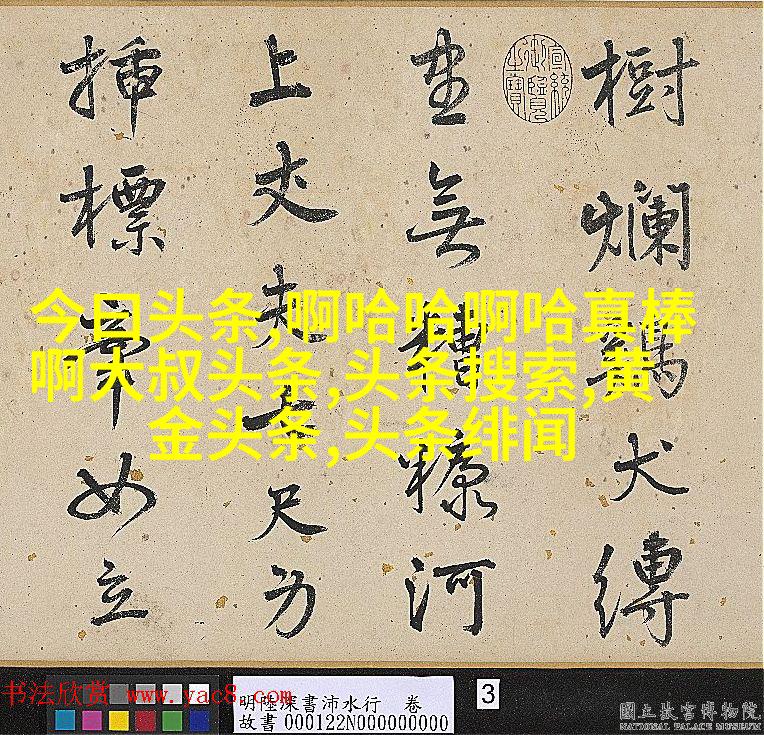 樹爛犬縛
宣統御覽之寶
坐無糠河
上丈夫尺
插標立
今日头条,啊哈哈啊哈真棒
啊大叔头条,头条搜索,黄
金头条,头条绯闻
书法欣赏 www.yac8.com
明陸深書沛水行 卷
故書 000122N000000000
3
國立故宮博物院
NATIONAL PALACE MUSEUM